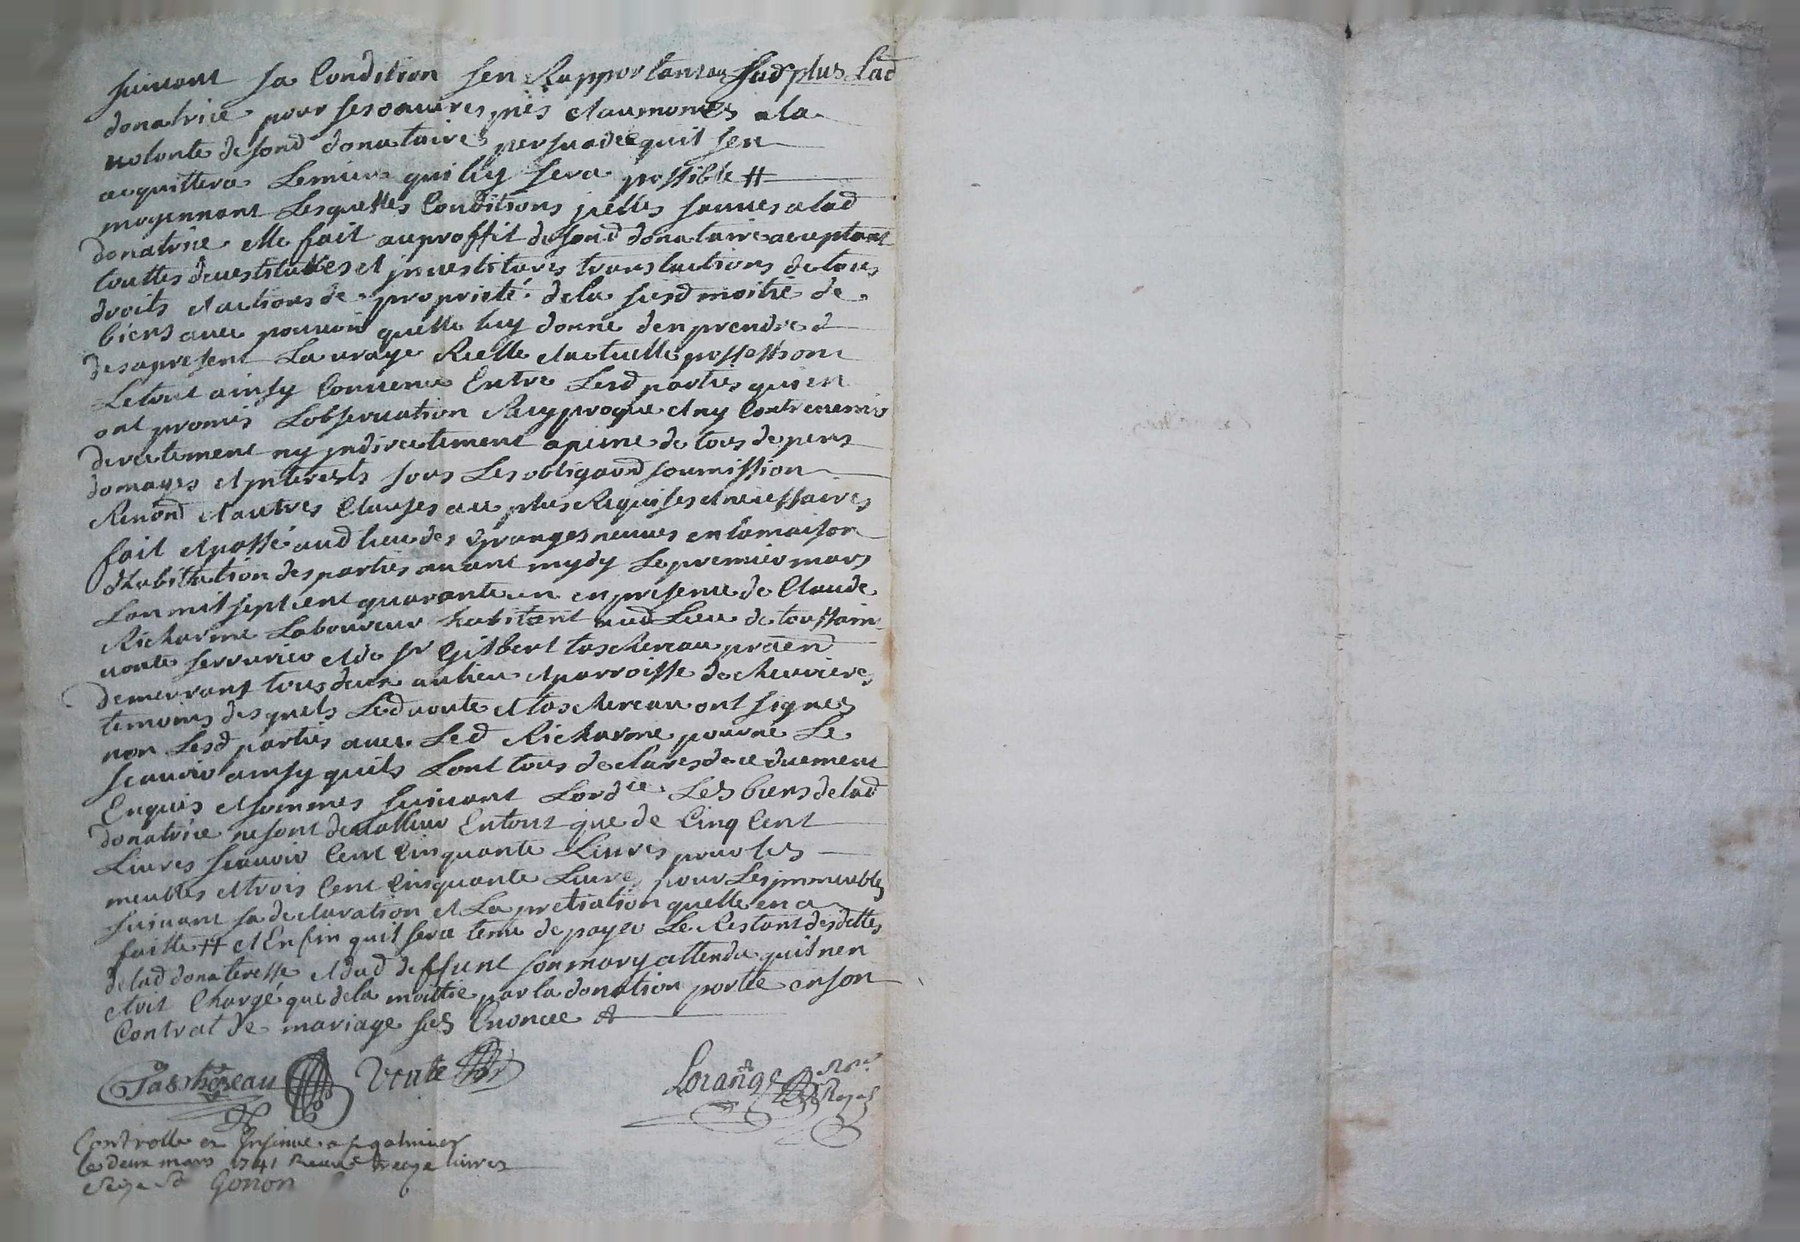 suivant sa Condition sen Rapportant au surplus lad
donatrice pour ses oeuvres pies et aumones a la
volonte de sond donataire persuadee quil sen
acquittera Lemieux qui luy sera possible #
moyennant Lesquelles Conditions jcelles sauves a lad
donatrice elle fait au proffit de sond donataire acceptant
touttes devestitures et jnvestitures translactions de tous
droits et actions de proprieté de la susd moitié de
biens avec pouvoir quelle luy donne den prendre
desapresent La vraye Rielle et actuelle possession
Le tout ainsy Convenu Entre Lesd parties qui en
ont promis Lobservation Recyproque et ny Contrevenir
directement ny jndirectement a peine de tous depens
domages et jnterests sous Les obligaōnd soumission
Renond et autres Clauses au plus Requises et necessaires
fait et passé aud lieu des granges neuves en la maison
dhabitation des parties avant mydy Le premier mars
Lan mil sept cent quarante un en presence de Claude
Richarme Laboureur habitant aud Lieu de toussaint
vente serrurier et de sr Gilbert taschereau praēn
demeurant tous deux au lieu et parroisse de chevrieres
temoins desquels Led vente et taschereau ont signes
non Lesd parties avec Led Richarme pour ne Le
scavoir ainsy quils Lont tous declares de ce duement
Enquis et sommes suivant Lordce Les biens de lad
donatrice ne sont de valleur En tout que de Cinq Cent
Livres scavoir Cent Cinquante Livres pour les
meubles et trois Cent Cinquante Livres pour Les jmmeubles
suivant sa declaration et La pretiation quelle en a
faitte # et Enfin quil sera tenu de payer Le Restant des dettes
de lad donateresse et dud deffunt son mary attendu quil nen
etoit Chargé que de la moittie par la donation portée en son
Contrat de mariage sus Enoncé
Taschereau Vente Lorange Nore Royal
Controlle et Insinue a st galmier
le deux mars 1741 Receu treize livres
seize s Gonon